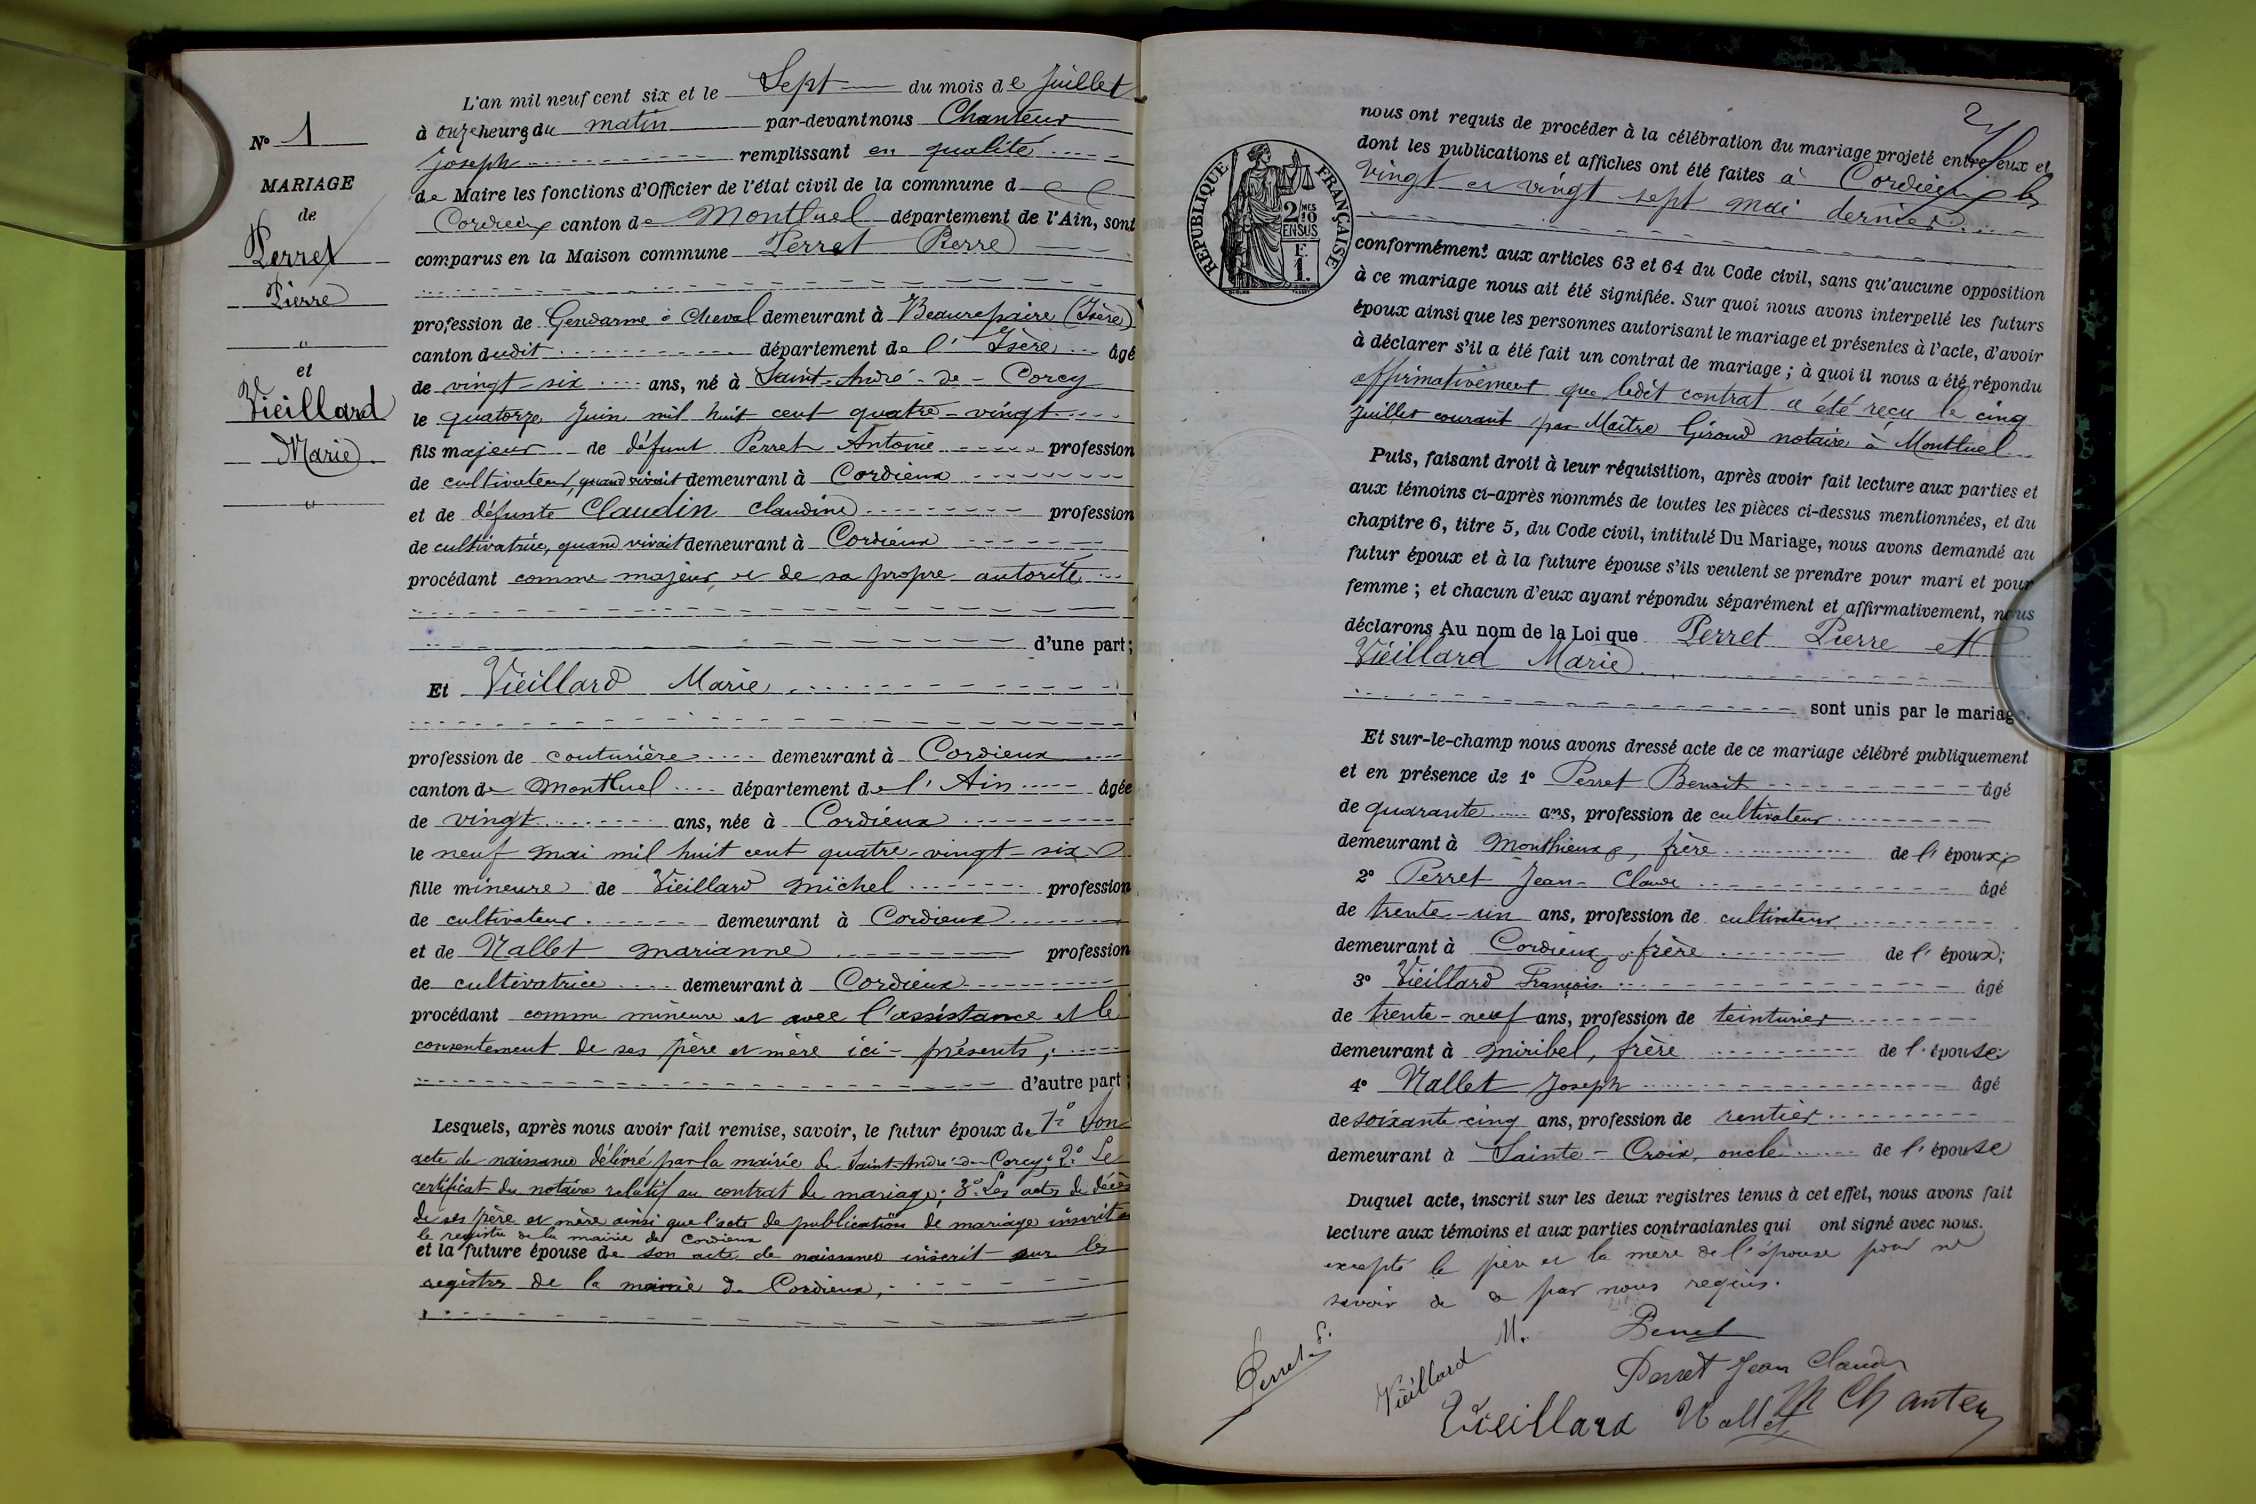 N° 1
MARIAGE
de
Perret
Pierre
"
et
Vieillard
Marie
"
L'an mil neuf cent six et le Sept du mois de Juillet
à onze heures du matin par-devant nous Chanteur
Joseph remplissant en qualité
de Maire les fonctions d'Officier de l'état civil de la commune de
Cordieux canton de Montluel département de l'Ain, sont
comparus en la Maison commune Perret Pierre
profession de Gendarme à cheval demeurant à Beaurepaire (Isère)
canton dudit département de l'Isère âgé
de vingt-six ans, né à Saint-André-de-Corcy
le quatorze Juin mil huit cent quatre-vingt
fils majeur de défunt Perret Antoine profession
de cultivateur, quand vivait demeurant à Cordieux
et de défunte Claudin Claudine profession
de cultivatrice, quand vivait demeurant à Cordieux
procédant comme majeur et de sa propre autorité
d'une part;
Et Vieillard Marie
profession de couturière demeurant à Cordieux
canton de Montluel département de l'Ain âgée
de vingt ans, née à Cordieux
le neuf mai mil huit cent quatre-vingt-six
fille mineure de Vieillard Michel profession
de cultivateur demeurant à Cordieux
et de Nallet Marianne profession
de cultivatrice demeurant à Cordieux
procédant comme mineure et avec l'assistance et le
consentement de ses père et mère ici-présents;
d'autre part;
Lesquels, après nous avoir fait remise, savoir, le futur époux de 1° Son
acte de naissance délivré par la mairie de Saint-André-de-Corcy; 2° Le
certificat du notaire relatif au contrat de mariage; 3° Les actes de décès
de ses père et mère ainsi que l'acte de publication de mariage inscrits
le registre de la mairie de Cordieux
et la future épouse de son acte de naissance inscrit sur les
registres de la mairie de Cordieux,
2
RÉPUBLIQUE FRANÇAISE
2 MES 10
EN SUS
F.
1.
nous ont requis de procéder à la célébration du mariage projeté entre eux et
dont les publications et affiches ont été faites à Cordieux les
vingt et vingt sept mai dernier
conformément aux articles 63 et 64 du Code civil, sans qu'aucune opposition
à ce mariage nous ait été signifiée. Sur quoi nous avons interpellé les futurs
époux ainsi que les personnes autorisant le mariage et présentes à l'acte, d'avoir
à déclarer s'il a été fait un contrat de mariage; à quoi il nous a été répondu
affirmativement que ledit contrat a été reçu le cinq
Juillet courant par Maître Giroud notaire à Montluel
Puis, faisant droit à leur réquisition, après avoir fait lecture aux parties et
aux témoins ci-après nommés de toutes les pièces ci-dessus mentionnées, et du
chapitre 6, titre 5, du Code civil, intitulé Du Mariage, nous avons demandé au
futur époux et à la future épouse s'ils veulent se prendre pour mari et pour
femme; et chacun d'eux ayant répondu séparément et affirmativement, nous
déclarons Au nom de la Loi que Perret Pierre et
Vieillard Marie
sont unis par le mariage.
Et sur-le-champ nous avons dressé acte de ce mariage célébré publiquement
et en présence de 1° Perret Benoit âgé
de quarante ans, profession de cultivateur
demeurant à Monthieux, frère de l'époux;
2° Perret Jean-Claude âgé
de trente-un ans, profession de cultivateur
demeurant à Cordieux, frère de l'époux;
3° Vieillard François âgé
de trente-neuf ans, profession de teinturier
demeurant à Miribel, frère de l'épouse;
4° Nallet Joseph âgé
de soixante-cinq ans, profession de rentier
demeurant à Sainte-Croix, oncle de l'épouse
Duquel acte, inscrit sur les deux registres tenus à cet effet, nous avons fait
lecture aux témoins et aux parties contractantes qui ont signé avec nous.
excepté le père et la mère de l'épouse pour ne
savoir de a par nous requis.
Perret P.
Vieillard M.
Perret
Perret Jean Claude
Vieillard
Nallet
Chanteur